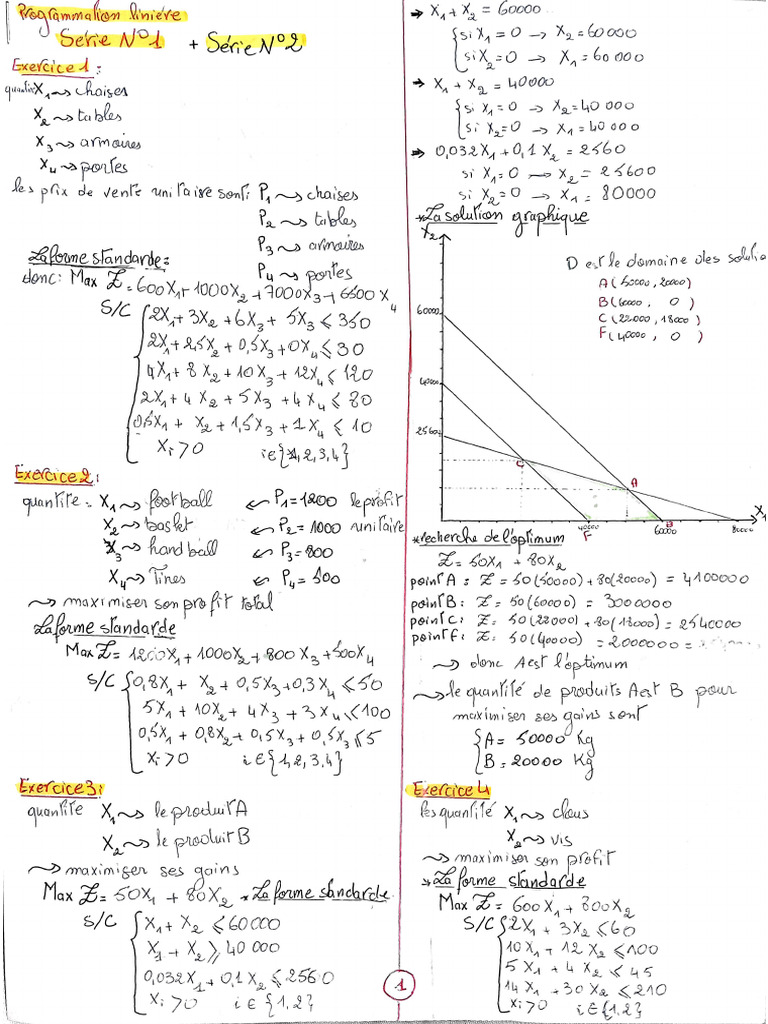 Programmation linière
Serie N°1 + Série N°2
Exercice 1 :
quantité X₁ ⇝ chaises
X₂ ⇝ tables
X₃ ⇝ armoires
X₄ ⇝ portes
les prix de vente unitaire sont: P₁ ⇝ chaises
P₂ ⇝ tables
P₃ ⇝ armoires
P₄ ⇝ portes
La forme standarde =
donc: Max Z = 600X₁ + 1000X₂ + 7000X₃ + 6500X₄
S/C
2X₁ + 3X₂ + 6X₃ + 5X₃ ≤ 350
2X₁ + 2,5X₂ + 0,5X₃ + 0X₄ ≤ 30
4X₁ + 8X₂ + 10X₃ + 12X₄ ≤ 120
2X₁ + 4X₂ + 5X₃ + 4X₄ ≤ 80
0,5X₁ + X₂ + 1,5X₃ + 1X₄ ≤ 10
Xi > 0 i ∈ {1,2,3,4}
Exercice 2 :
quantite = X₁ ⇝ football ⇜ P₁ = 1200 le profit
X₂ ⇝ basket ⇜ P₂ = 1000 unitaire
X₃ ⇝ handball ⇜ P₃ = 800
X₄ ⇝ Tines ⇜ P₄ = 500
⇝ maximiser son profit total
La forme standarde
Max Z = 1200X₁ + 1000X₂ + 800X₃ + 500X₄
S/C
0,8X₁ + X₂ + 0,5X₃ + 0,3X₄ ≤ 50
5X₁ + 10X₂ + 4X₃ + 3X₄ ≤ 100
0,5X₁ + 0,8X₂ + 0,5X₃ + 0,5X₃ ≤ 5
Xi > 0 i ∈ {1,2,3,4}
Exercice 3 :
quantite X₁ ⇝ le produit A
X₂ ⇝ le produit B
⇝ maximiser ses gains
Max Z = 50X₁ + 80X₂ * La forme standarde
S/C
X₁ + X₂ ≤ 60000
X₁ + X₂ ≥ 40 000
0,032X₁ + 0,1X₂ ≤ 2560
Xi > 0 i ∈ {1,2}
→ X₁ + X₂ = 60000
si X₁ = 0 → X₂ = 60000
si X₂ = 0 → X₁ = 60 000
→ X₁ + X₂ = 40000
si X₁ = 0 → X₂ = 40 000
si X₂ = 0 → X₁ = 40 000
→ 0,032X₁ + 0,1X₂ = 2560
si X₁ = 0 → X₂ = 25600
si X₂ = 0 → X₁ = 80000
* La solution graphique
X₂
D est le domaine des solutio
A(50000, 20000)
B(60000, 0)
C(22000, 18000)
F(40000, 0)
60000
40000
2560
C
A
40000 60000 80000 X₁
F B
* recherche de l'optimum
Z = 50X₁ + 80X₂
point A : Z = 50(50000) + 80(20000) = 4100000
point B : Z = 50(60000) = 3000000
point C : Z = 50(22000) + 80(18000) = 2540000
point F : Z = 50(40000) = 2000000
⇝ donc A est l'optimum
⇝ le quantité de produits A est B pour
maximiser ses gains sont
A = 50000 Kg
B = 20000 Kg
Exercice 4
les quantité X₁ ⇝ clous
X₂ ⇝ vis
⇝ maximiser son profit
* La forme standarde
Max Z = 600X₁ + 800X₂
S/C
2X₁ + 3X₂ ≤ 60
10X₁ + 12X₂ ≤ 100
5X₁ + 4X₂ ≤ 45
14X₁ + 30X₂ ≤ 210
Xi > 0 i ∈ {1,2}
1